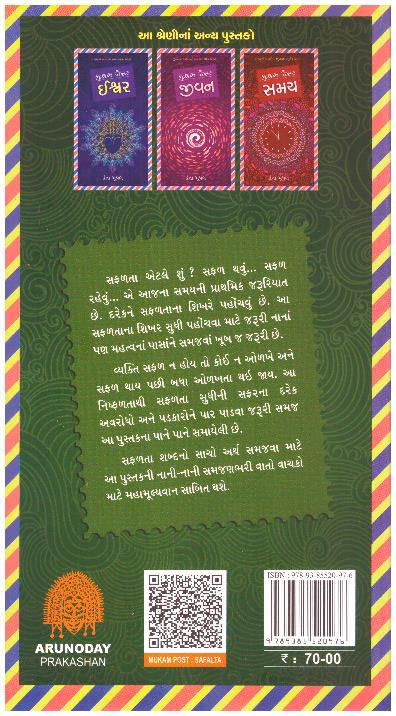 આ શ્રેણીનાં અન્ય પુસ્તકો
મુકામ પોસ્ટ
ઈશ્વર
મુકામ પોસ્ટ
જીવન
મુકામ પોસ્ટ
સમય
સફળતા એટલે શું ? સફળ થવું... સફળ
રહેવું... એ આજના સમયની પ્રાથમિક જરૂરિયાત
છે. દરેકને સફળતાના શિખરે પહોંચવું છે. આ
સફળતાના શિખર સુધી પહોંચવા માટે જરૂરી નાનાં
પણ મહત્વનાં પાસાંને સમજવાં ખૂબ જ જરૂરી છે.
વ્યક્તિ સફળ ન હોય તો કોઈ ન ઓળખે અને
સફળ થાય પછી બધા ઓળખતા થઇ જાય. આ
નિષ્ફળતાથી સફળતા સુધીની સફરના દરેક
અવરોધો અને પડકારોને પાર પાડવા જરૂરી સમજ
આ પુસ્તકના પાને પાને સમાયેલી છે.
સફળતા શબ્દનો સાચો અર્થ સમજવા માટે
આ પુસ્તકની નાની-નાની સમજણભરી વાતો વાચકો
માટે મહામૂલ્યવાન સાબિત થશે.
ARUNODAY
PRAKASHAN
MUKAM POST : SAFALTA
ISBN : 978-93-85520-97-6
9 789385 520976
₹ : 70-00